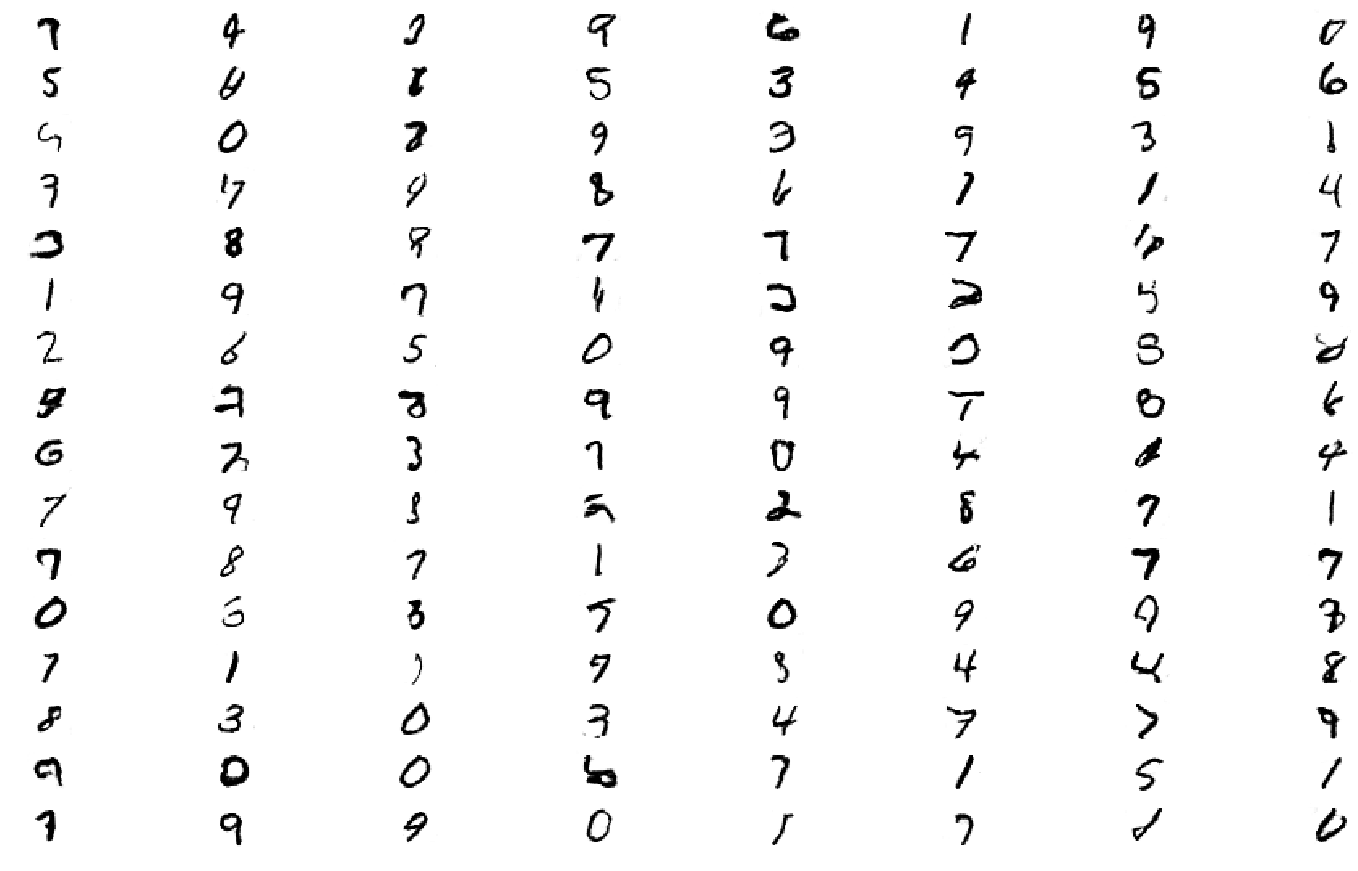 7 4 9 6 1 9 0
5 5 3 4 5 6
0 2 9 3 9 3 1
7 17 9 8 6 7 1 4
8 8 7 7 7 7
1 9 7 2 2 5 9
2 6 5 0 9 0 8
9 2 3 9 9 7 8 6
6 2 3 7 0 4 4
7 9 8 2 2 8 7 1
7 8 7 1 3 6 7 7
0 5 3 5 0 9 9 3
7 1 9 9 4 4 8
8 3 0 3 4 7 7 9
9 0 0 6 7 1 5 1
7 9 9 0 7 0